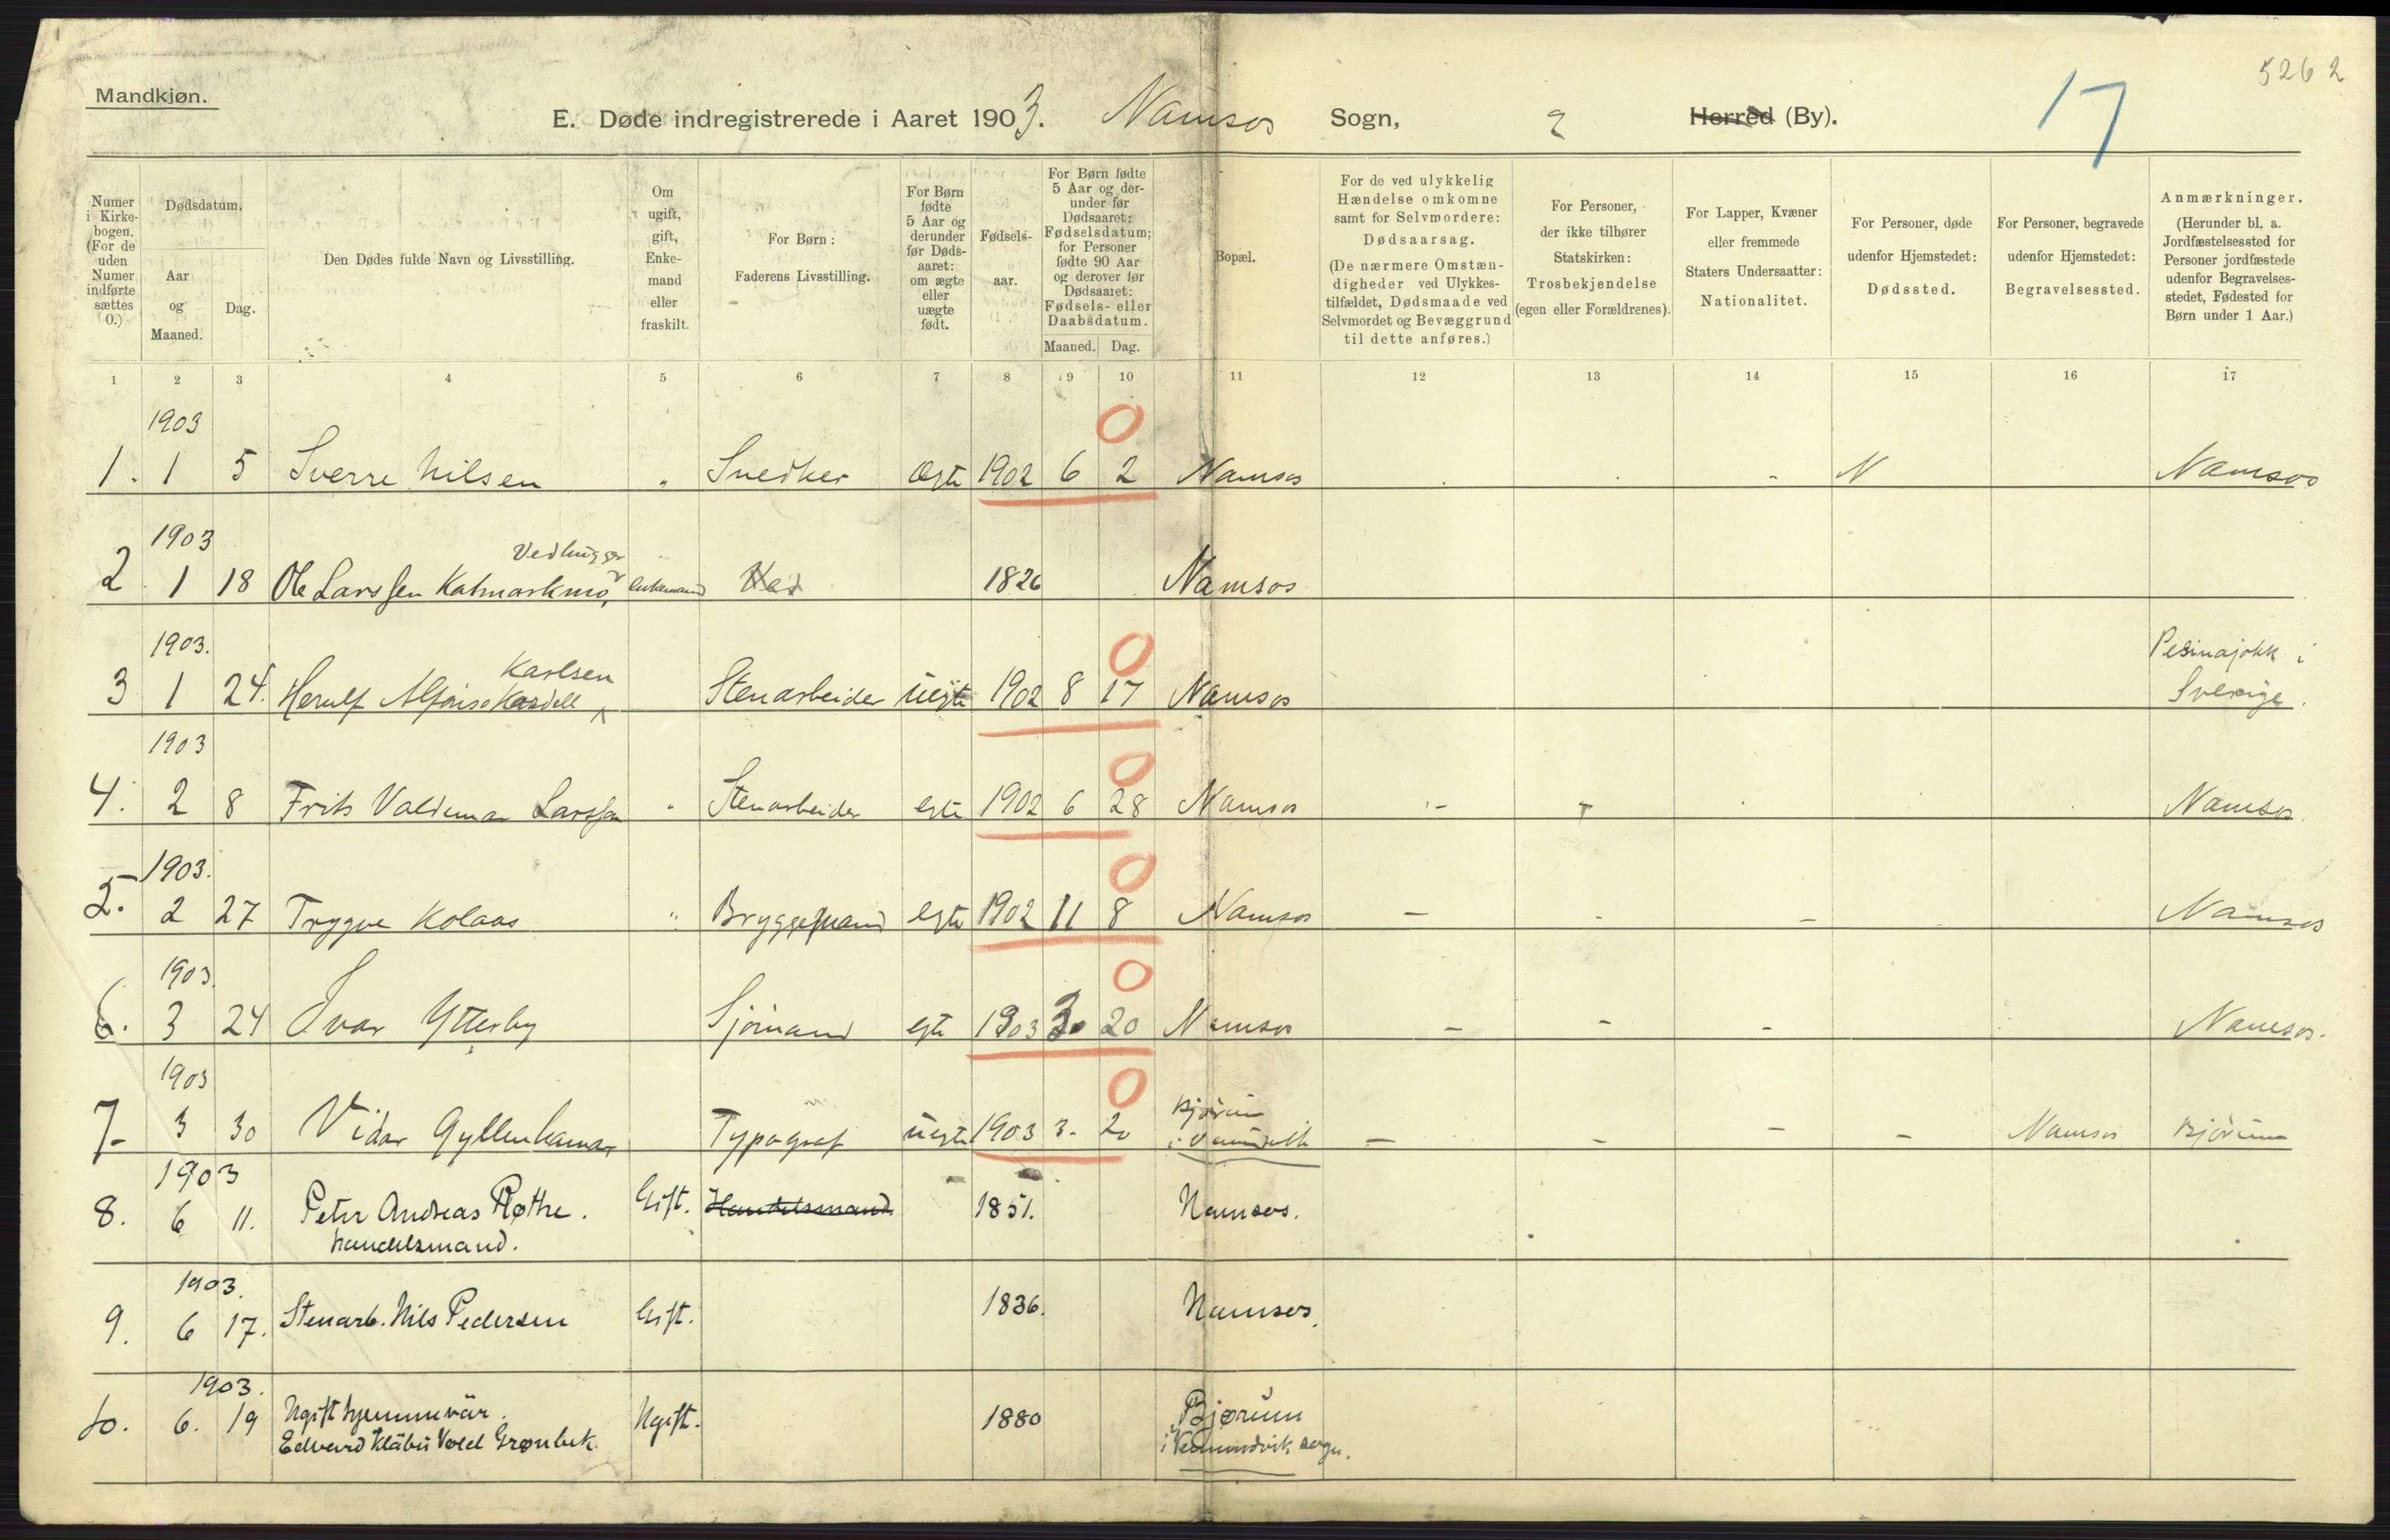 5262
Mandkjøn.
E. Døde indregistrerede i Aaret 1903. Namsos Sogn, Herred (By). 17
Numer i Kirkebogen. (For de uden Numer indførte sættes 0.)
Dødsdatum.
Aar og Maaned.
Dag.
Den Dødes fulde Navn og Livsstilling.
Om ugift, gift, Enkemand eller fraskilt.
For Børn: Faderens Livsstilling.
For Børn fødte 5 Aar og derunder før Dødsaaret: om ægte eller uægte født.
Fødselsaar.
For Børn fødte 5 Aar og derunder før Dødsaaret: Fødselsdatum; for Personer fødte 90 Aar og derover før Dødsaaret: Fødsels- eller Daabsdatum.
Maaned. Dag.
Bopæl.
For de ved ulykkelig Hændelse omkomne samt for Selvmordere: Dødsaarsag. (De nærmere Omstændigheder ved Ulykkestilfældet, Dødsmaade ved Selvmordet og Bevæggrund til dette anføres.)
For Personer, der ikke tilhører Statskirken: Trosbekjendelse (egen eller Forældrenes).
For Lapper, Kvæner eller fremmede Staters Undersaatter: Nationalitet.
For Personer, døde udenfor Hjemstedet: Dødssted.
For Personer, begravede udenfor Hjemstedet: Begravelsessted.
Anmærkninger. (Herunder bl. a. Jordfæstelsessted for Personer jordfæstede udenfor Begravelsesstedet, Fødested for Børn under 1 Aar.)
1 2 3 4 5 6 7 8 9 10 11 12 13 14 15 16 17
1903 0
1. 1 5 Sverre Nilsen " Snedker ægte 1902 6 2 Namsos N Namsos
1903 Vedhugger
2 1 18 Ole Larssen Katmarkmo, Enkemand Ved 1826 Namsos
1903. Karlsen 0 i
3 1 24. Herulf Alfons Kardell Stenarbeider uegte 1902 8 17 Namsos Sverige.
1903 0
4. 2 8 Frits Valdemar Larssen " Stenarbeider egte 1902 6 28 Namsos Namsos
1903. 0
5. 2 27 Trygve Kolaas " Bryggemand egte 1902 11 8 Namsos Namsos
1903. 0
6. 3 24 Ivar Ytterby Sjömand egte 1903 3. 20 Namsos Namsos.
1903 0 Bjørum
7 3 30 Vidar Gyllenhamar Typograf uegte 1903 3. 20 i Namsos Bjørum
1903
8. 6 11. Peter Andreas Røthe. Gift. Handelsmand 1851. Namsos.
handelsmand.
1903.
9. 6 17. Stenarb. Nils Pedersen Gift. 1836. Namsos.
1903.
10. 6. 19 Ugift hjemmevär. Ugift. 1880 Bjørum
Edvard Kläbu Vold Grønbek. i Vemundvik sogn.